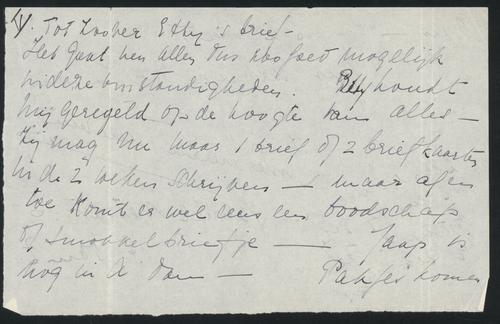 IV. Tot zoover Etty's brief -
Het gaat hen allen dus zoo goed mogelijk
in deze omstandigheden. Etty houdt
mij geregeld op de hoogte van alles -
Zij mag nu maar 1 brief of 2 briefkaarten
in de 2 weken schrijven - maar af en
toe komt er wel eens een boodschap
of smokkelbriefje - Jaap is
nog in A'dam - Pakjes komen